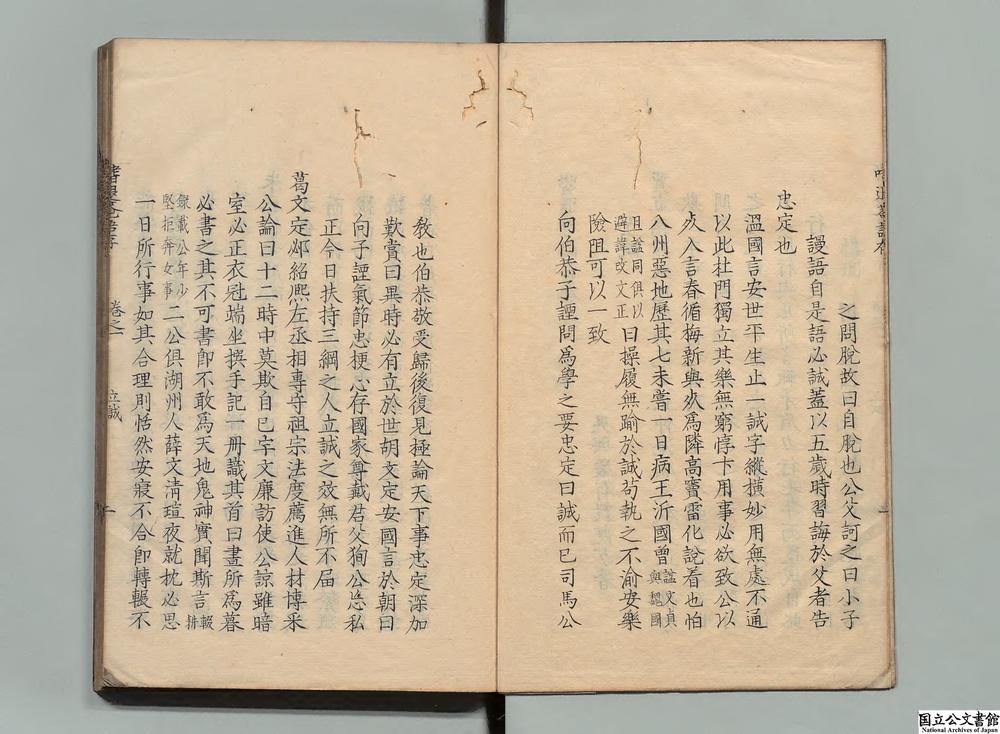 之問脫故曰自脫也公父訶之曰小子
謾語自是語必誠蓋以五歲時習誨於父者告
忠定也
溫國言安世平生止一誠字縱橫妙用無處不通
以此杜門獨立其樂無窮惇卞用事必欲致公以
入言春循梅新與為隣高竇雷化說着也怕
八州惡地歷其七未嘗一日病王沂國曾謚文貞與魏國
且謚同俱以避諱改文正曰操履無踰於誠苟執之不渝安樂
險阻可以一致
向伯恭子諲問爲學之要忠定曰誠而已司馬公
敎也伯恭敬受歸後復見極論天下事忠定深加
歎賞曰異時必有立於世胡文定安國言於朝曰
向子諲氣節忠梗心存國家尊戴君父狥公忘私
正今日扶持三綱之人立誠之效無所不届
葛文定邲紹熙左丞相專守祖宗法度薦進人材博采
公論曰十二時中莫欺自已宇文廉訪使公諒雖暗
室必正衣冠端坐撰手記一冊識其首曰晝所爲暮
必書之其不可書卽不敢爲天地鬼神實聞斯言輟耕
錄載公年少堅拒奔女事二公俱湖州人薛文淸瑄夜就枕必思
一日所行事如其合理則恬然安寢不合卽轉輾不
卷之一
立誠
一
国立公文書館
National Archives of Japan